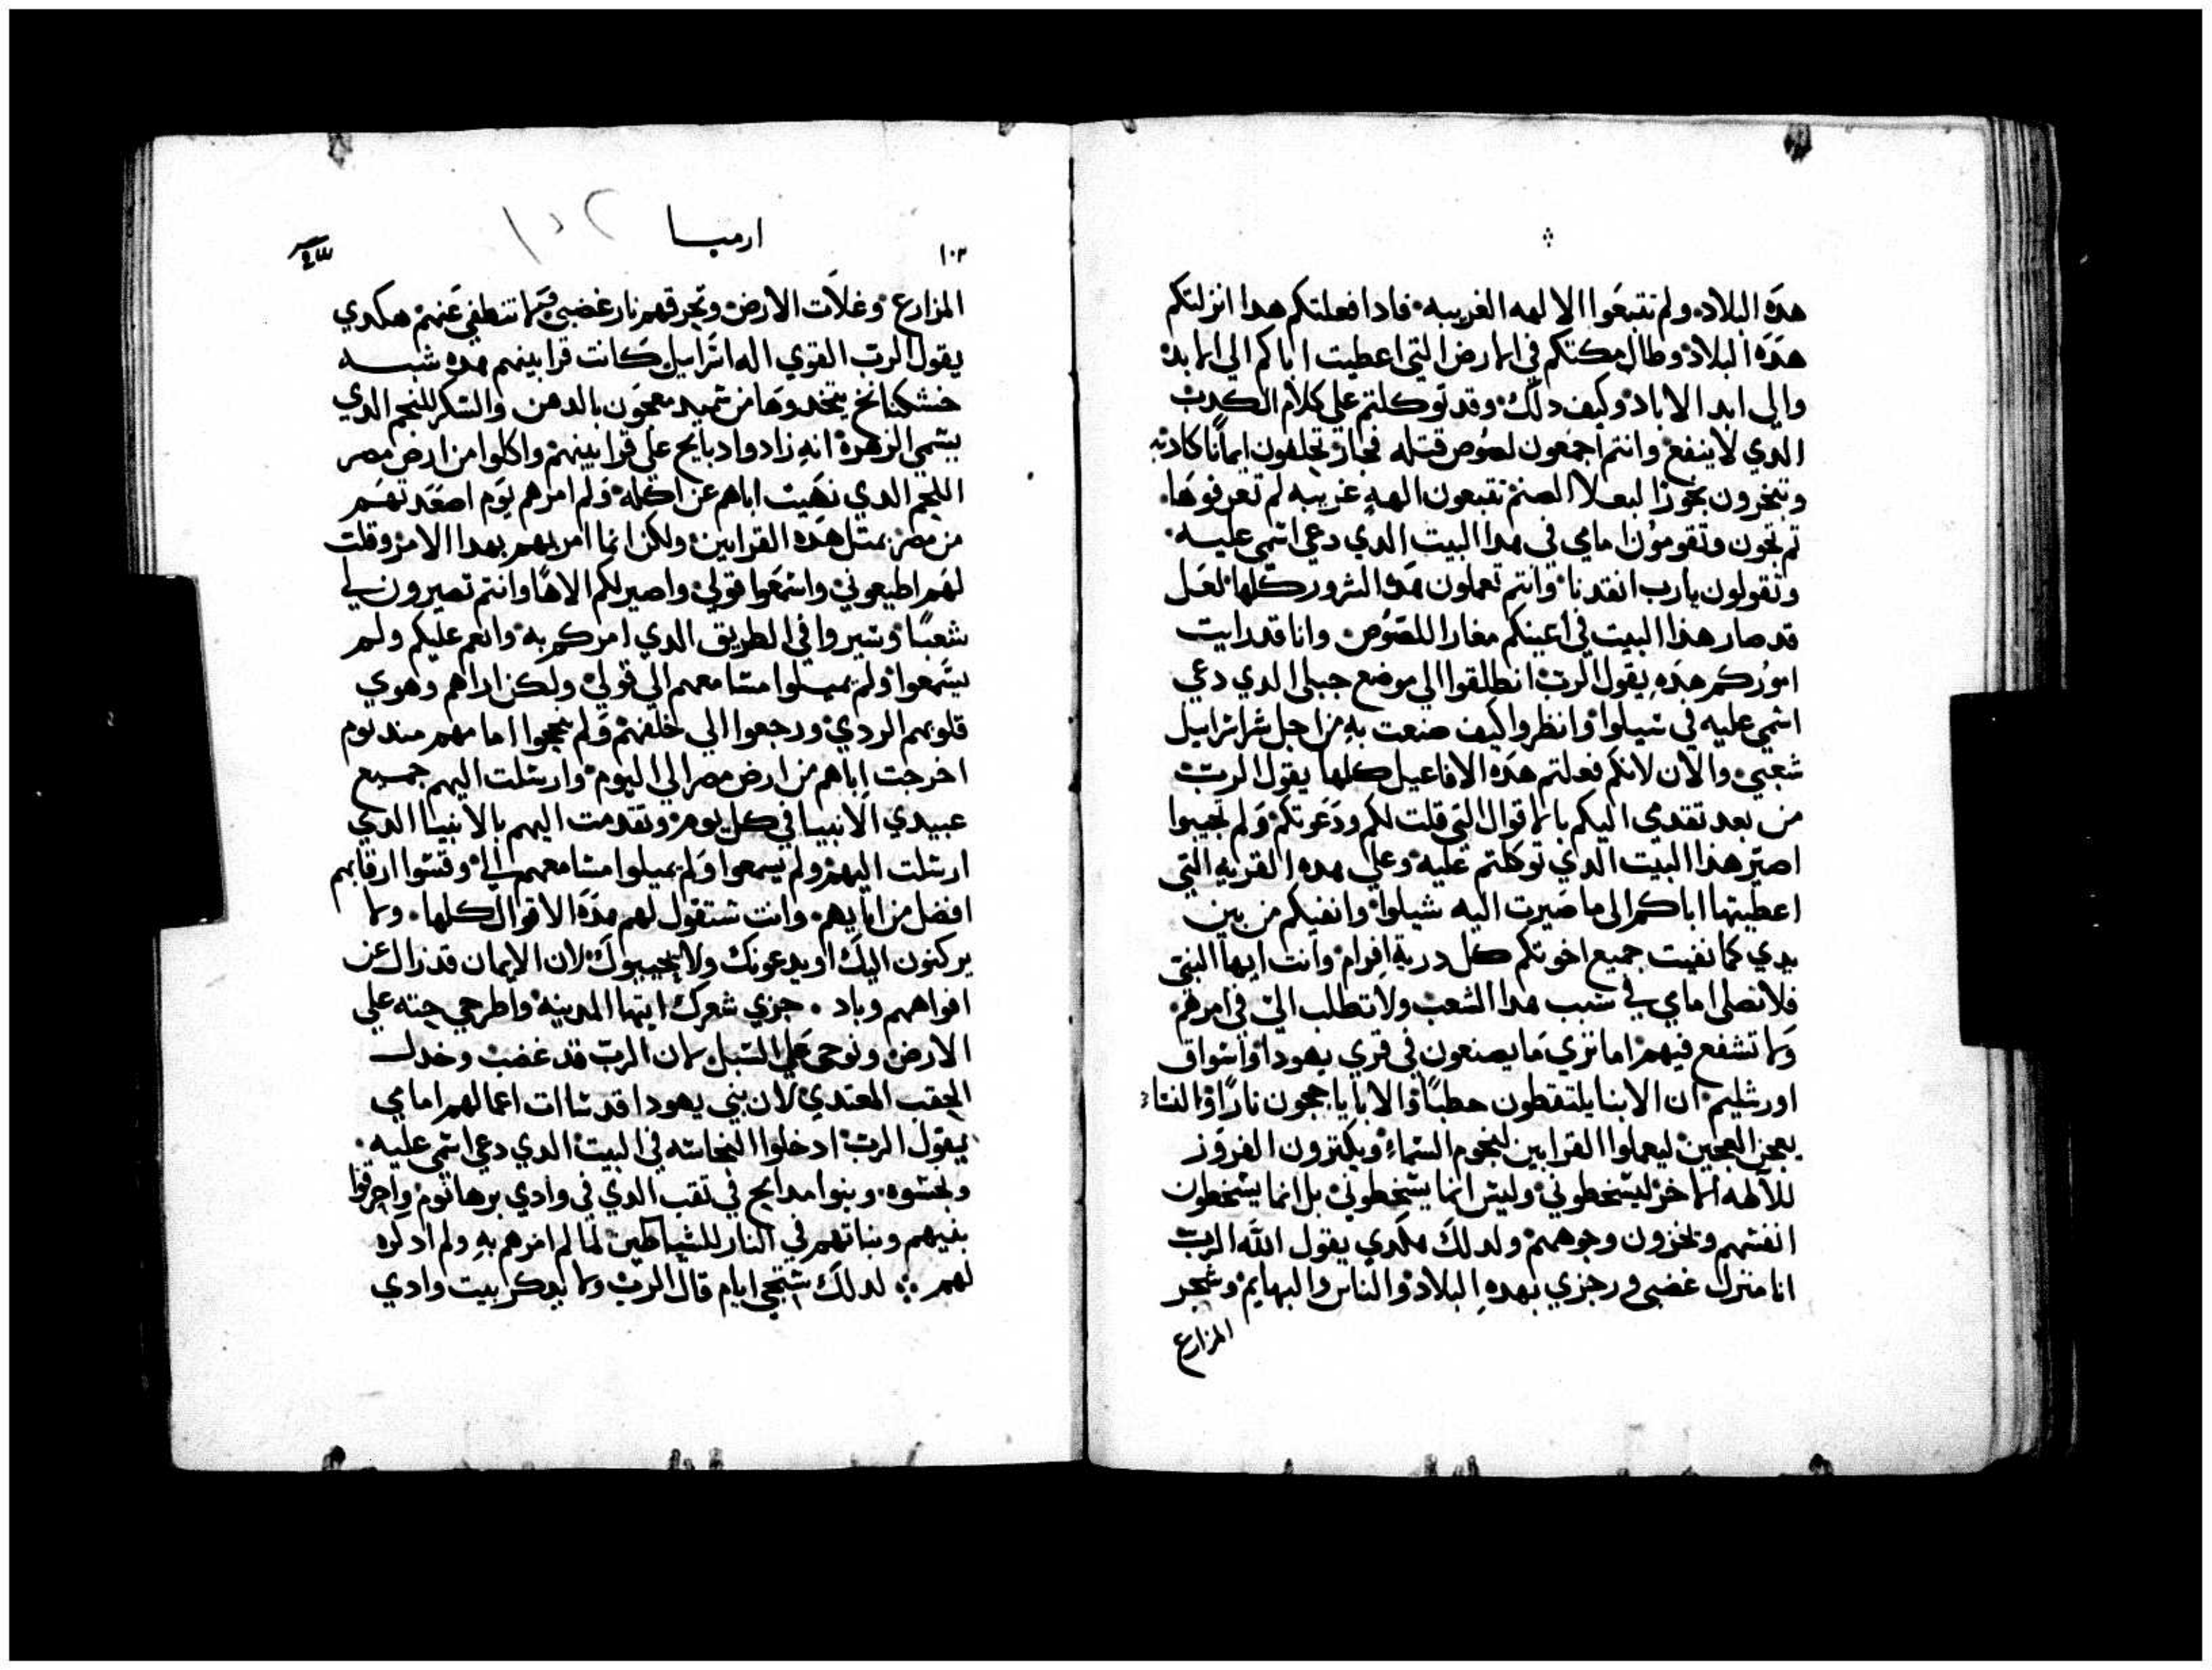 هذه البلاد ولم تتبعوا الالهه الغريبه فادا فعلتكم هدا انزلتكم
هذه البلاد وطال مكتكم في الارض التي اعطيت اباكم الي الابد
والي ابد الاباد وكيف دلك وقد توكلتم علي كلام الكدب
الدي لا ينفع وانتم اجمعون لصوص قتله فجار تحلفون ايمانا كادبه
وتبخرون بخورا لبعلا الصنم تتبعون الهه غريبه لم تعرفوها
تم تجون وتقومون امامي في هدا البيت الدي دعي اسمي عليه
وتقولون يارب انقدنا وانتم تعملون هده الشرور كلها لعل
قد صار هذا البيت في اعينكم مغارا للصوص وانا قد رايت
اموركم هذه يقول الرب انطلقوا الي موضع جبلي الدي دعي
اسمي عليه في شيلوا وانظروا كيف صنعت به من اجل شر اسراييل
شعبي والان لانكم فعلتم هذه الافاعيل كلها يقول الرب
من بعد تقدمي اليكم بالاقوال التي قلت لكم ودعوتكم ولم تجيبوا
اصير هذا البيت الدي توكلتم عليه وعلي هده القريه التي
اعطيتها اباكم الي ما صيرت اليه شيلوا وانفيكم من بين
يدي كما نفيت جميع اخوتكم كل درية افرام وانت ايها النبي
فلا تصلي امامي في سبب هدا الشعب ولا تطلب الي في امرهم
ولا تشفع فيهم اما تري ما يصنعون في قري يهودا واسواق
اورشليم ان الابنا يلتقطون حطبا والابا ياججون نارا والنسا
يعجن العجين ليعملوا القرابين لنجوم السماء ويكترون الفروز
للالهه الاخر ليسخطوني وليس انما يسخطوني بل انما يسخطون
انفسهم وتخزون وجوههم ولدلك هكدي يقول الله الرب
انا منزل غضبي ورجزي بهده البلاد والناس والبهايم وشجر
المزارع
ارميا
١٠٢
١٠٣
المزارع وغلات الارض وتحرقهم نار غضبي فما تنطفي عنهم هكدي
يقول الرب القوي اله اسراييل كانت قرابينهم هده شبه
خشكنانج يتخدوها من سميد معجون بالدهن والسكر للنجم الدي
يسمي الزهرة انه زادوا دبايح علي قرابينهم واكلوا من ارض مصر
اللحم الدي نهيت اباهم عن اكله ولم امرهم يوم اصعدتهم
من مصر بمتل هذه القرابين ولكن انما امرتهم بهدا الامر وقلت
لهم اطيعوني واسمعوا قولي واصير لكم الاها وانتم تصيرون لي
شعبا وسيروا في الطريق الدي امركم به وانعم عليكم ولم
يسمعوا ولم يميلوا مسامعهم الي قولي ولكن اراهم وهوي
قلوبهم الردي ورجعوا الي خلفهم ولم يججوا امامهم مند يوم
اخرجت اباهم من ارض مصر الي اليوم وارسلت اليهم جميع
عبيدي الانبيا في كل يوم وتقدمت اليهم بالانبيا الدي
ارسلت اليهم ولم يسمعوا ولم يميلوا مسامعهم الي وقسوا ارقابهم
افضل من ابايهم وانت ستقول لهم هذه الاقوال كلها ولا
يركنون اليك او يدعونك ولا يجيبوك لان الايمان قد زال عن
افواههم وباد جزي شعرك ايتها المدينه واطرحي جته علي
الارض ونوحي علي السبل لان الرب قد غضب وخدل
الحقب المعتدي لان بني يهودا قد ساات اعمالهم امامي
يقول الرب ادخلوا النجاسه في البيت الدي دعي اسمي عليه
ونجسوه وبنوا مدابح في تقب الدي في وادي برهانوم واحرقوا
بنيهم وبناتهم في النار للشياطين لما لم امرهم به ولم ادكره
لهم لدلك ستجي ايام قال الرب ولا يدكر بيت وادي